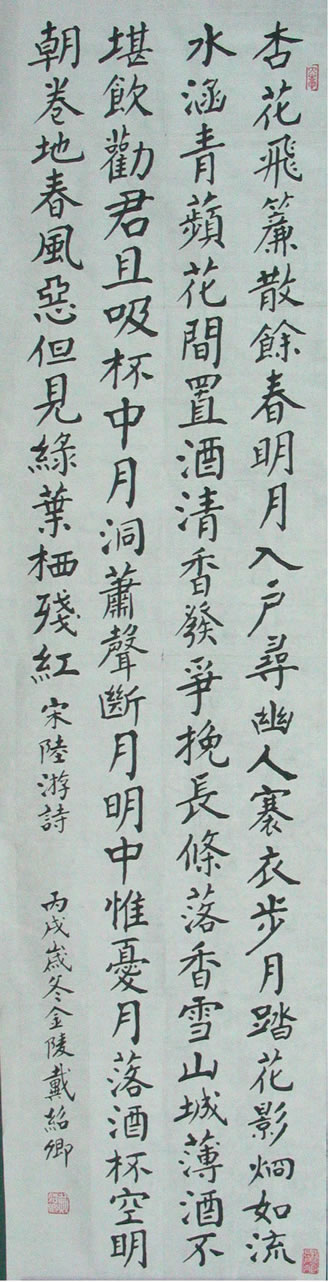 杏花飛簾散餘春明月入戶尋幽人褰衣步月踏花影炯如流
水涵青蘋花間置酒清香發爭挽長條落香雪山城薄酒不
堪飲勸君且吸杯中月洞蕭聲斷月明中惟憂月落酒杯空明
朝卷地春風惡但見綠葉栖殘紅 宋陸游詩 丙戌歲冬金陵戴紹卿